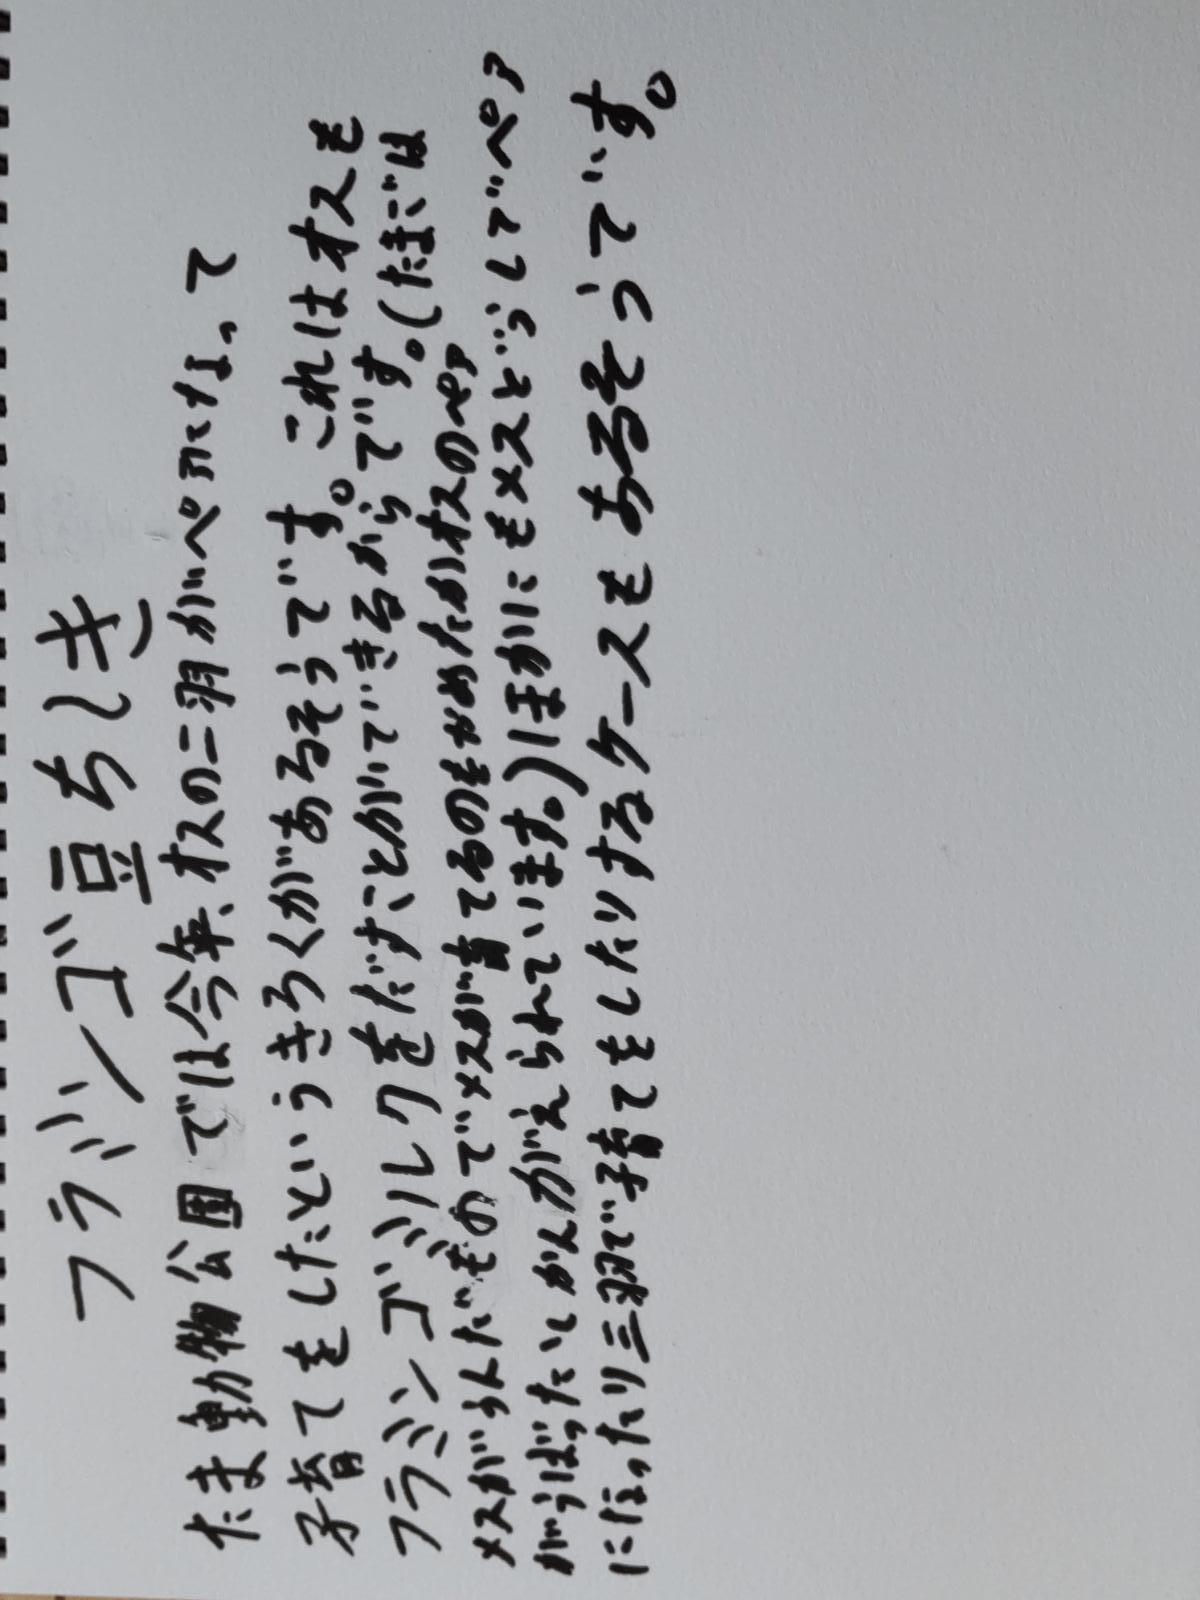 フラミンゴ豆ちしき
たま動物公園では今年、オスの二羽がペアになって
子育てをしたというきろくがあるそうです。これはオスも
フラミンゴミルクをだすことができるからです。(たまごは
メスがうんだもので メスが育てるのをやめたかオスのペア
がうばったとかんがえられています。)ほかにもメスどうしでペア
になったり三羽で子育てをしたりするケースもあるそうです。